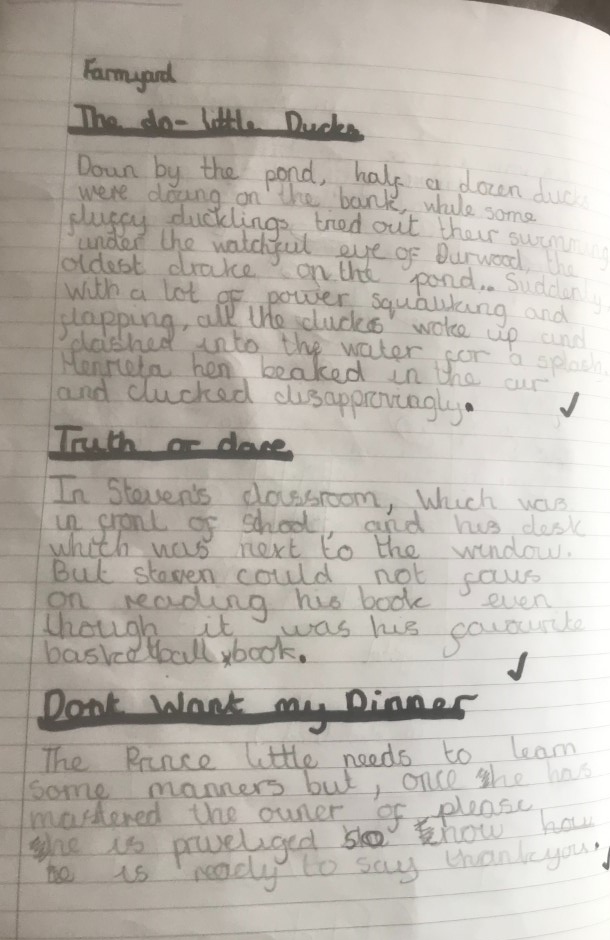 Farmyard
The do-little Ducks
Down by the pond, half a dozen ducks
were dozing on the bank, while some
fluffy ducklings tried out their swimming
under the watchful eye of Durwood, the
oldest drake on the pond.. Suddenly
with a lot of power squawking and
flapping, all the ducks woke up and
dashed into the water for a splash.
Henrieta hen beaked in the air
and clucked disapprovingly.
Truth or dare
In Steven's classroom, Which was
in front of School, and his desk
which was next to the window.
But steven could not
on reading his book even
though it was his favourite
basketball book.
Dont Want my Dinner
The Prince little needs to learn
some manners but, once he has
mastered the owner of please
he is priveliged to how
he is ready to say thankyou.